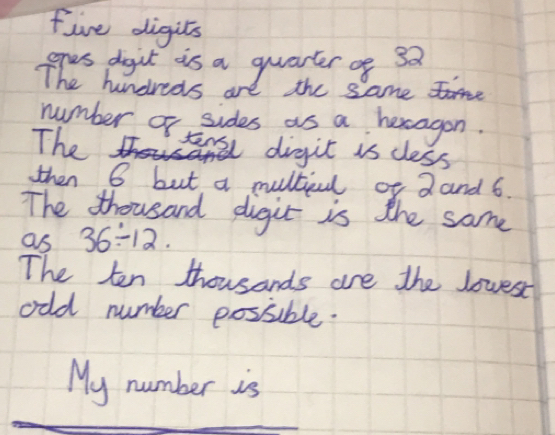 five digits
ones digit is a quarter of 32
The hundreds are the same time
number of sides as a hexagon.
The thousand tens digit is less
then 6 but a multipul of 2 and 6.
The thousand digit is the same
as 36÷12.
The ten thousands are the lowest
odd number possible.
My number is